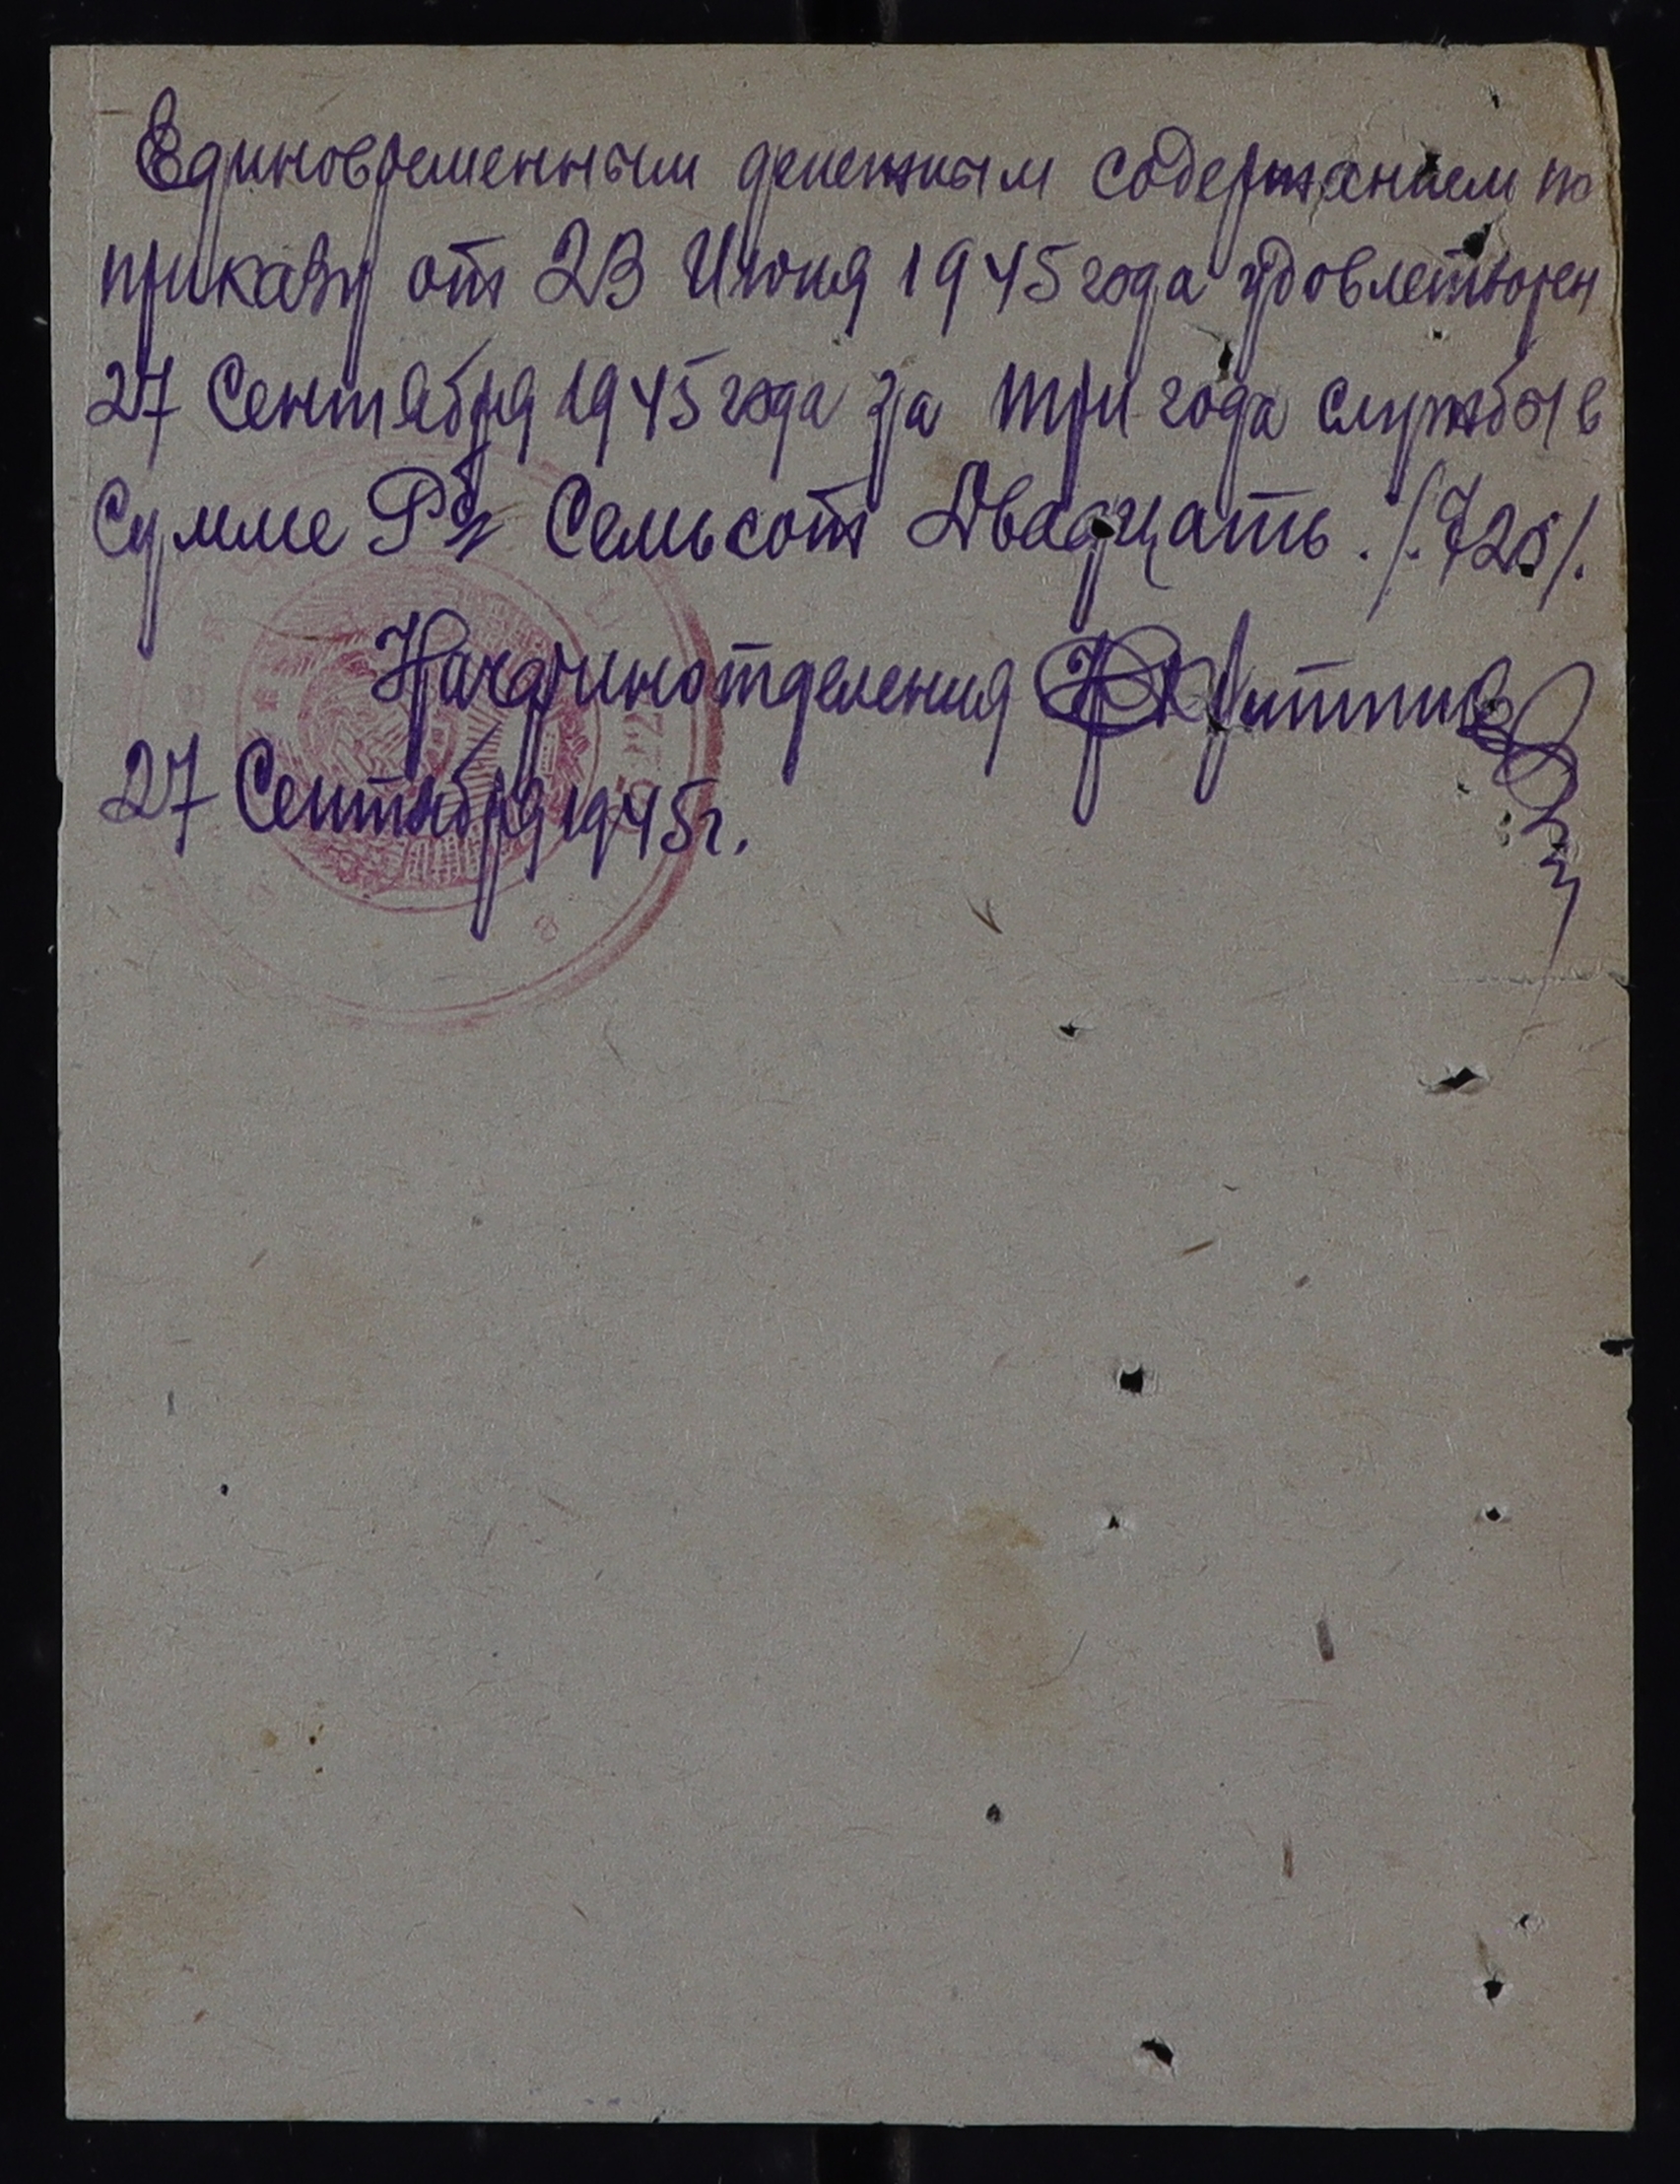 Единовременным денежным содержанием по
приказу от 23 Июня 1945 года удовлетворен
27 Сентября 1945 года за три года службы в
Сумме Рб Семьсот Двадцать. /.720/.
Начфинотделения
27 Сентября 1945 г.